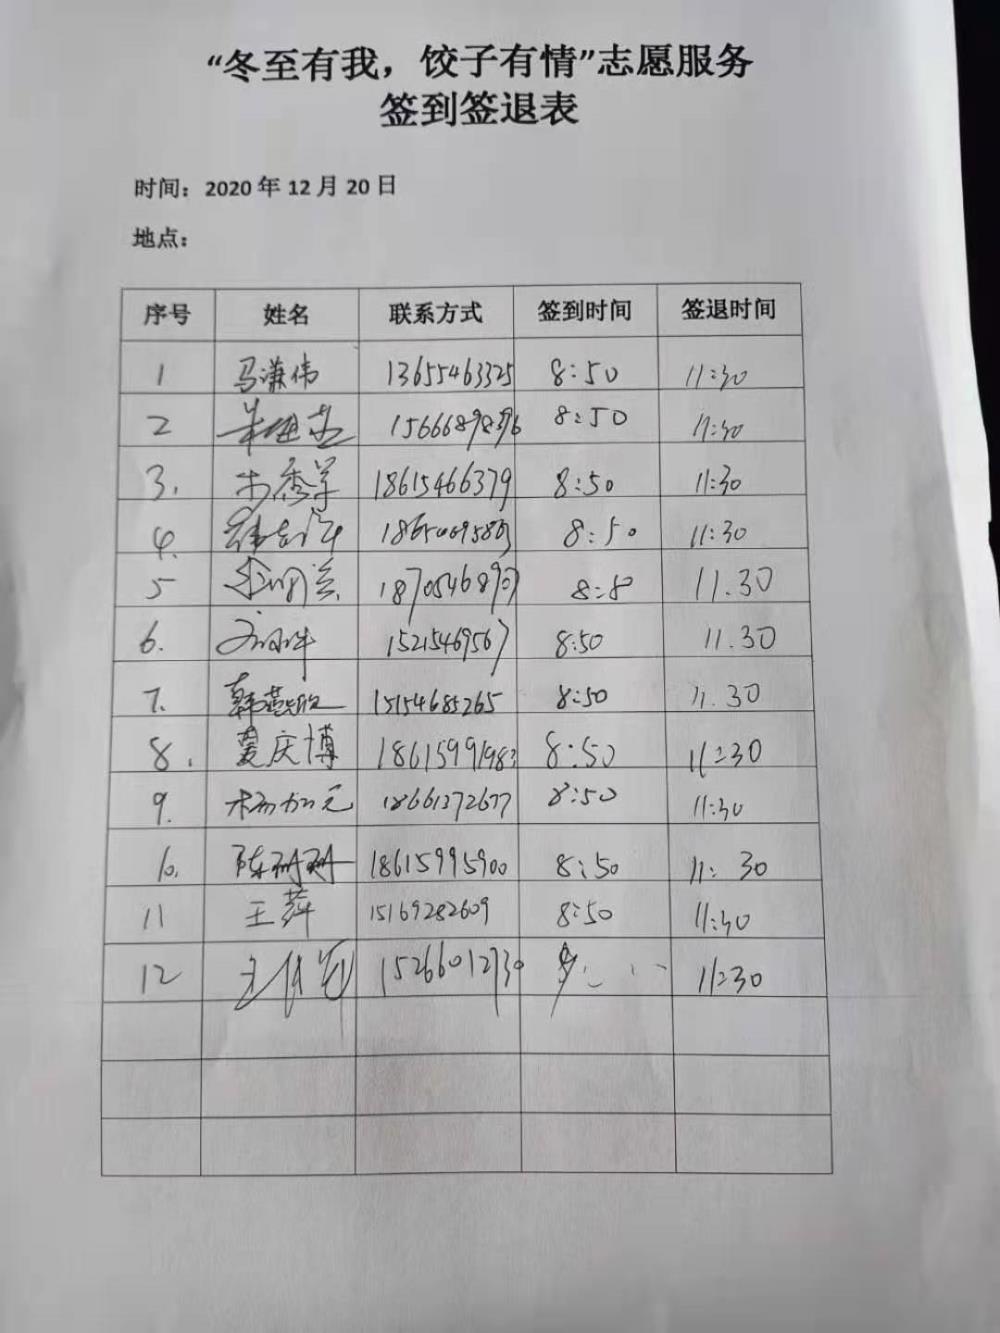 “冬至有我，饺子有情”志愿服务
签到签退表
时间：2020 年 12 月 20 日
地点：
序号 姓名 联系方式 签到时间 签退时间
1 马谦伟 13655463325 8:50 11:30
2 8:50 11:30
3. 18615466379 8:50 11:30
4. 8:50 11:30
5 11.30
6. 8:50 11.30
7. 韩燕欣 15154685265 8:50 11.30
8. 夏庆博 8:50 11:30
9. 18661272677 8:50 11:30
10. 陈珊珊 18615995900 8:50 11:30
11 王萍 15169282609 8:50 11:30
12 11:30